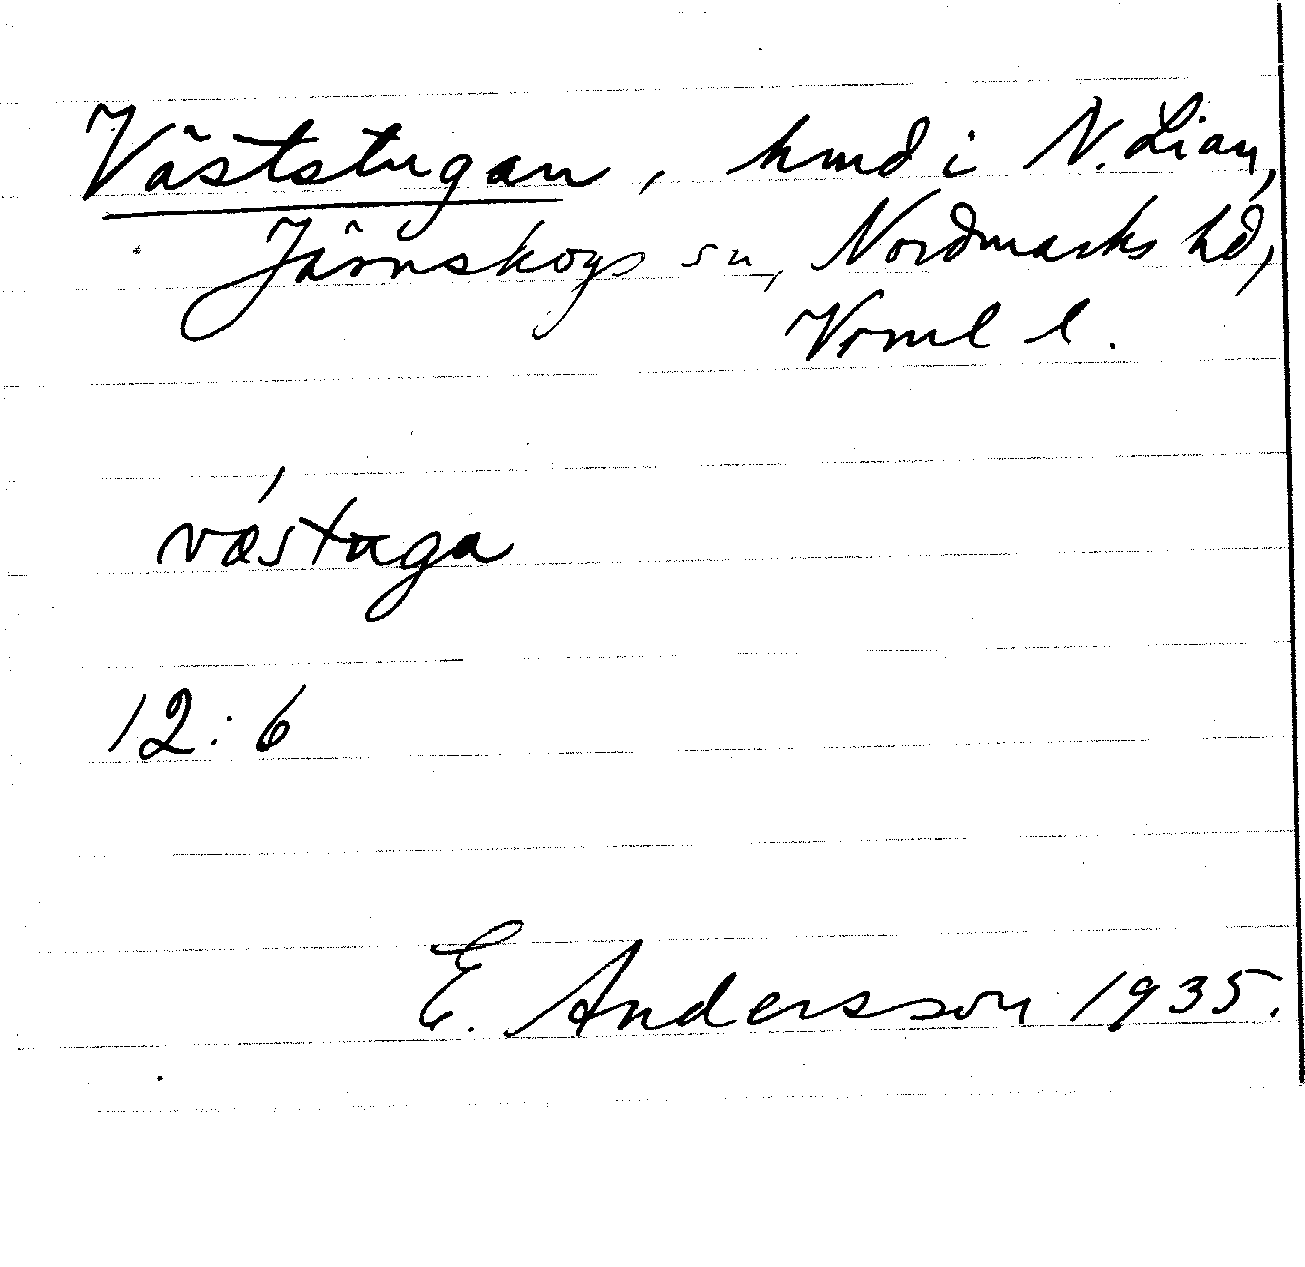 Väststugan, hmd i N. Lian,
Järnskogs sn, Nordmarks hd,
Vrml l.
vǽstuga
12:6
E. Andersson 1935.